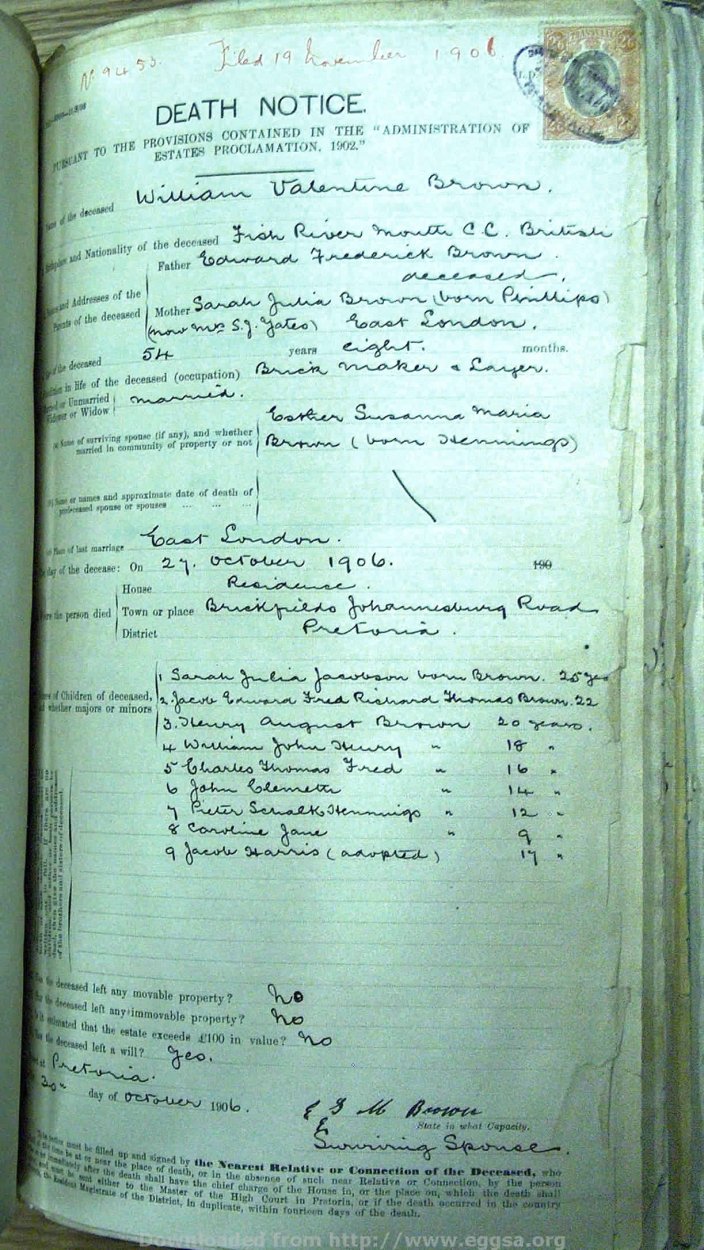 No 9453. Filed 19 November 1906.
DEATH NOTICE.
TO THE PROVISIONS CONTAINED IN THE "ADMINISTRATION OF
ESTATES PROCLAMATION, 1902."
of the deceased William Valentine Brown.
and Nationality of the deceased Fish River Mouth C.C. British
Father Edward Frederick Brown.
deceased.
and Addresses of the
Parents of the deceased
Mother Sarah Julia Brown (born Phillips)
(now Mrs S. J. Yates) East London.
of the deceased 54 years eight. months.
in life of the deceased (occupation) Brick maker & Layer.
or Unmarried
or Widow
married.
Name of surviving spouse (if any), and whether
married in community of property or not
Esther Susanna Maria
Brown (born Hennings)
or names and approximate date of death of
predeceased spouse or spouses ... ... ...
\
Place of last marriage East London.
day of the decease: On 27. October 1906. 190
House Residence.
the person died Town or place Brickfields Johannesburg Road
District Pretoria.
of Children of deceased,
whether majors or minors
1 Sarah Julia Jacobson born Brown. 25
2. Jacob Edward Fred Richard Thomas Brown. 22
3. Henry August Brown 20 years.
4 William John Henry " 18 "
5 Charles Thomas Fred " 16 "
6 John " 14 "
7 Pieter Schalk Hennings " 12 "
8 Caroline Jane " 9 "
9 Jacob Harris (adopted) 17 "
of the brothers and sisters of deceased.
deceased left any movable property? No
deceased left any immovable property? No
that the estate exceeds £100 in value? No
deceased left a will? Yes.
Pretoria.
30th day of October 1906.
E S M Brown
State in what Capacity.
Surviving Spouse.
must be filled up and signed by the Nearest Relative or Connection of the Deceased, who
be at or near the place of death, or in the absence of such near Relative or Connection, by the person
immediately after the death shall have the chief charge of the House in, or the place on, which the death shall
sent either to the Master of the High Court in Pretoria, or if the death occurred in the country
Resident Magistrate of the District, in duplicate, within fourteen days of the death.
Downloaded from http://www.eggsa.org